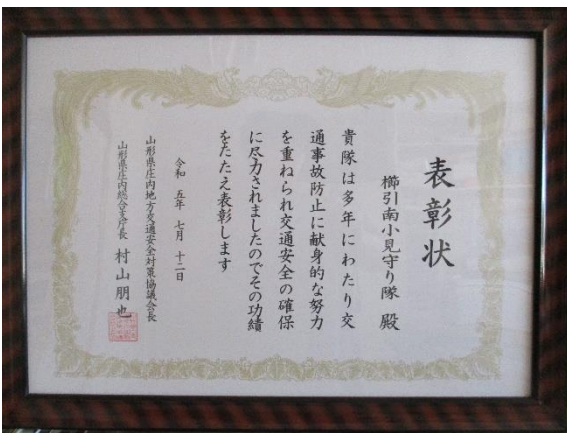 表彰状
櫛引南小見守り隊 殿
貴隊は多年にわたり交
通事故防止に献身的な努力
を重ねられ交通安全の確保
に尽力されましたのでその功績
をたたえ表彰します
令和 五年 七月 十二日
山形県庄内地方交通安全対策協議会長
山形県庄内総合支庁長 村山朋也